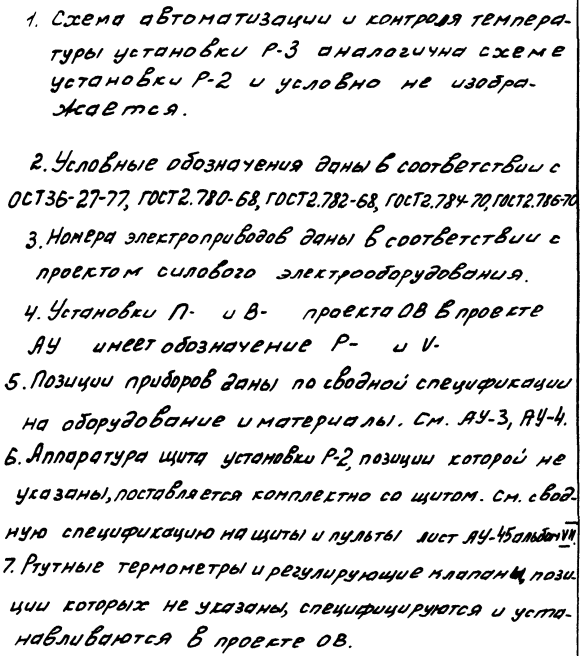 1. Схема автоматизации и контроля темпера-
туры установки Р-3 аналогична схеме
установки Р-2 и условно не изобра-
жается.
2. Условные обозначения даны в соответствии с
ОСТ36-27-77, ГОСТ2.780-68, ГОСТ2.782-68, ГОСТ2.784-70, ГОСТ2.786-70
3. Номера электроприводов даны в соответствии с
проектом силового электрооборудования.
4. Установки П- и В- проекта ОВ в проекте
АУ имеет обозначение Р- и V-
5. Позиции приборов даны по сводной спецификации
на оборудование и материалы. См. АУ-3, АУ-4.
6. Аппаратура щита установки Р-2, позиции которой не
указаны, поставляется комплектно со щитом. См. свод-
ную спецификацию на щиты и пульты лист АУ-45 альбом VII.
7. Ртутные термометры и регулирующие клапаны, пози-
ции которых не указаны, специфицируются и уста-
навливаются в проекте ОВ.